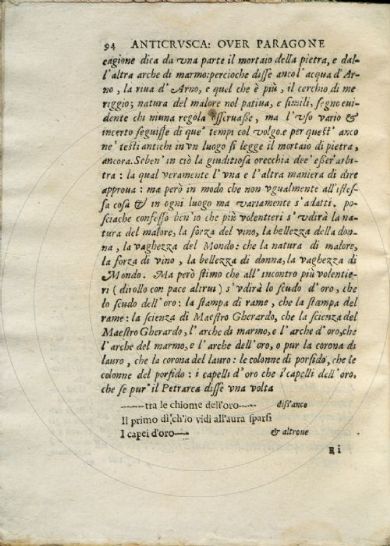 94 ANTICRVSCA: OVER PARAGONE
cagione dica da vna parte il mortaio della pietra, e dal-
l'altra arche di marmo: percioche disse ancol'acqua d'Ar-
no, la riua d'Arno, e quel che è più, il cerchio di me-
riggio; natura del malore nol patiua, e simili, segno eui-
dente chi niuna regola osseruasse, ma l'vso vario &
incerto seguisse di que' tempi col volgo. e per quest'anco
ne' testi antichi in vn luogo si legge il mortaio di pietra,
ancora. Seben' in ciò la giuditiosa orecchia dee' esser arbi-
tra: la qual veramente l'vna e l'altra maniera di dire
approua: ma però in modo che non vgualmente all'istes-
sa cosa & in ogni luogo ma variamente s'adatti. po-
sciache confesso ben'io che più volentieri s'vdirà la na-
tura del malore, la forza del vino, la bellezza della don-
na, la vaghezza del Mondo: che la natura di malore,
la forza di vino, la bellezza di donna, la vaghezza di
Mondo. Ma però stimo che all'incontro più volentie-
ri (dirollo con pace altrui) s'vdirà lo scudo d'oro, che
lo scudo dell'oro: la stampa di rame, che la stampa del
rame: la scienza di Maestro Gherardo, che la scienza del
Maestro Gherardo, l'arche di marmo, e l'arche d'oro, che
l'arche del marmo, e l'arche dell'oro, o pur la corona di
lauro, che la corona del lauro: le colonne di porfido, che le
colonne del porfido: i capelli d'oro che i capelli dell'oro.
che se pur'il Petrarca disse vna volta
——tra le chiome dell'oro—— diss'anco
Il primo dì ch'io vidi all'aura sparsi
I capei d'oro—— & altroue